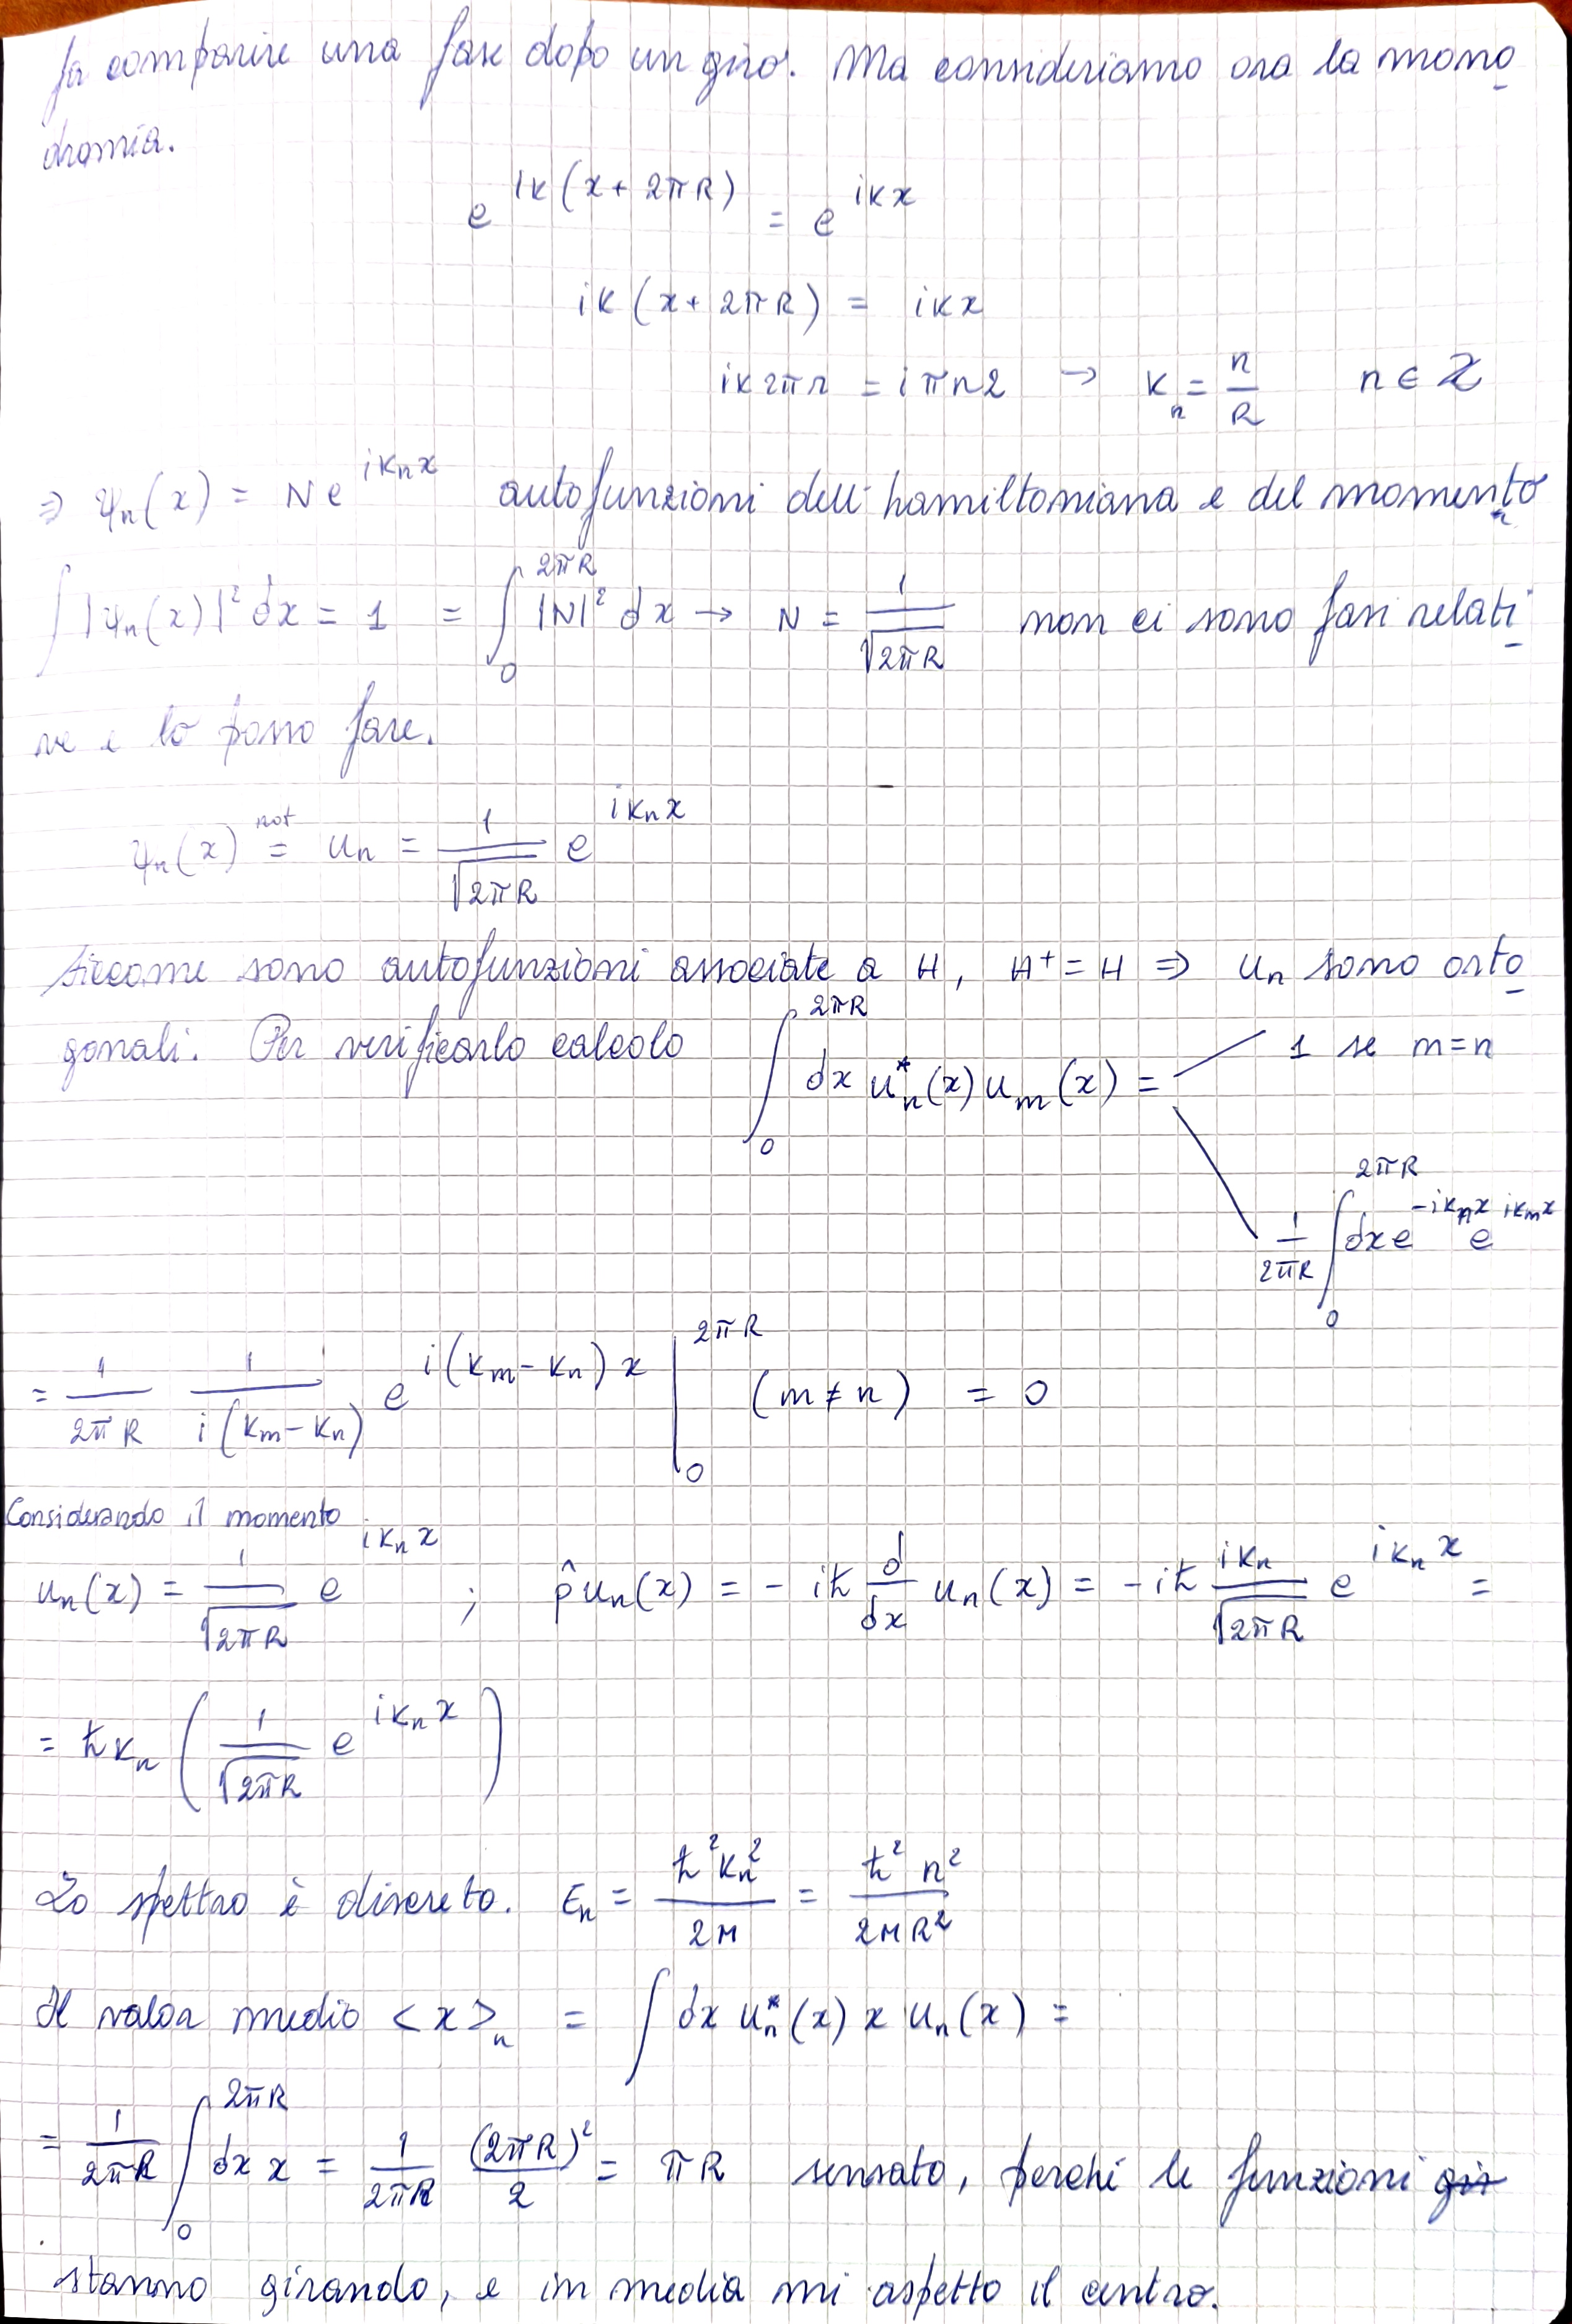 fa comparire una fase dopo un giro. Ma consideriamo ora la mono
dromia.
e^{ik(x+2πR)} = e^{ikx}
ik(x+2πR) = ikx
ik2πr = iπn2 → k_n = n/R n ∈ ℤ
⇒ ψ_n(x) = N e^{ik_n x} autofunzioni dell'hamiltoniana e del momento
∫|ψ_n(x)|² dx = 1 = ∫_0^{2πR} |N|² dx → N = 1/√(2πR) non ci sono fasi relati
ve e lo posso fare.
ψ_n(x) =^{not} u_n = 1/√(2πR) e^{ik_n x}
Siccome sono autofunzioni associate a H, H⁺ = H ⇒ u_n sono orto
gonali. Per verificarlo calcolo ∫_0^{2πR} dx u_n^*(x) u_m(x) = 1 se m=n
1/(2πR) ∫_0^{2πR} dx e^{-ik_n x} e^{ik_m x}
= 1/(2πR) 1/(i(k_m - k_n)) e^{i(k_m - k_n)x} |_0^{2πR} (m ≠ n) = 0
Considerando il momento
u_n(x) = 1/√(2πR) e^{ik_n x} ; p̂ u_n(x) = -iħ d/dx u_n(x) = -iħ ik_n/√(2πR) e^{ik_n x} =
= ħk_n (1/√(2πR) e^{ik_n x})
Lo spettro è discreto. E_n = ħ²k_n²/2M = ħ²n²/2MR²
Il valor medio <x>_n = ∫ dx u_n^*(x) x u_n(x) =
= 1/(2πR) ∫_0^{2πR} dx x = 1/(2πR) (2πR)²/2 = πR sensato, perché le funzioni gir
stanno girando, e in media mi aspetto il centro.